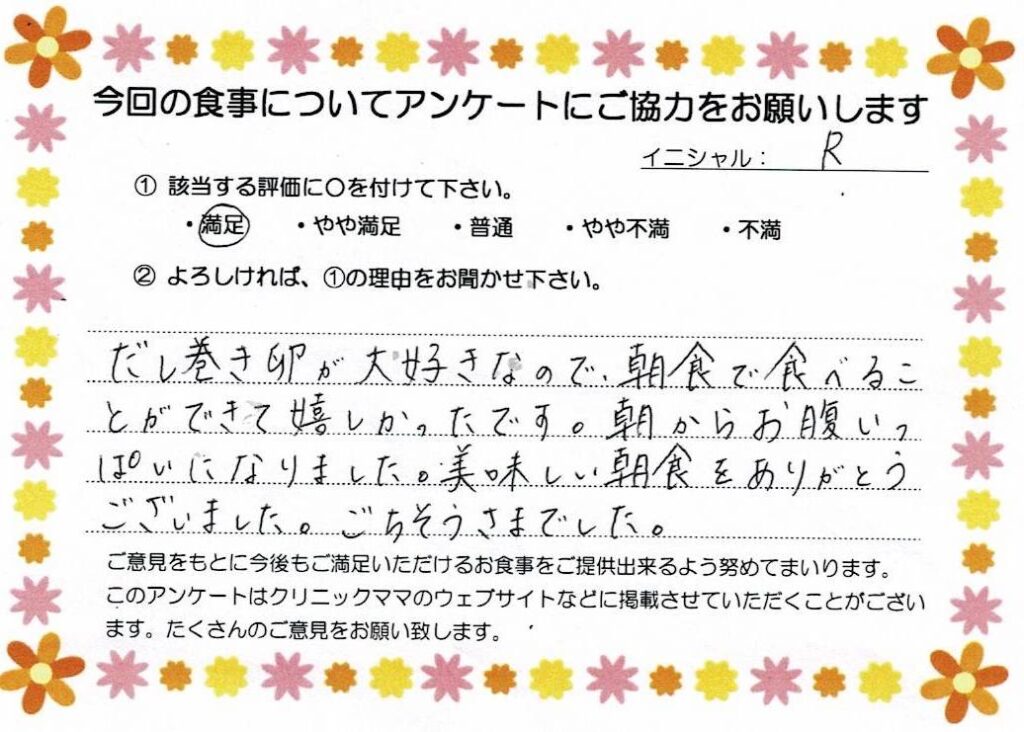 今回の食事についてアンケートにご協力をお願いします
イニシャル： R
① 該当する評価に〇を付けて下さい。
・満足 ・やや満足 ・普通 ・やや不満 ・不満
② よろしければ、①の理由をお聞かせ下さい。
だし巻き卵が大好きなので、朝食で食べるこ
とができて嬉しかったです。朝からお腹いっ
ぱいになりました。美味しい朝食をありがとう
ございました。ごちそうさまでした。
ご意見をもとに今後もご満足いただけるお食事をご提供出来るよう努めてまいります。
このアンケートはクリニックママのウェブサイトなどに掲載させていただくことがござい
ます。たくさんのご意見をお願い致します。